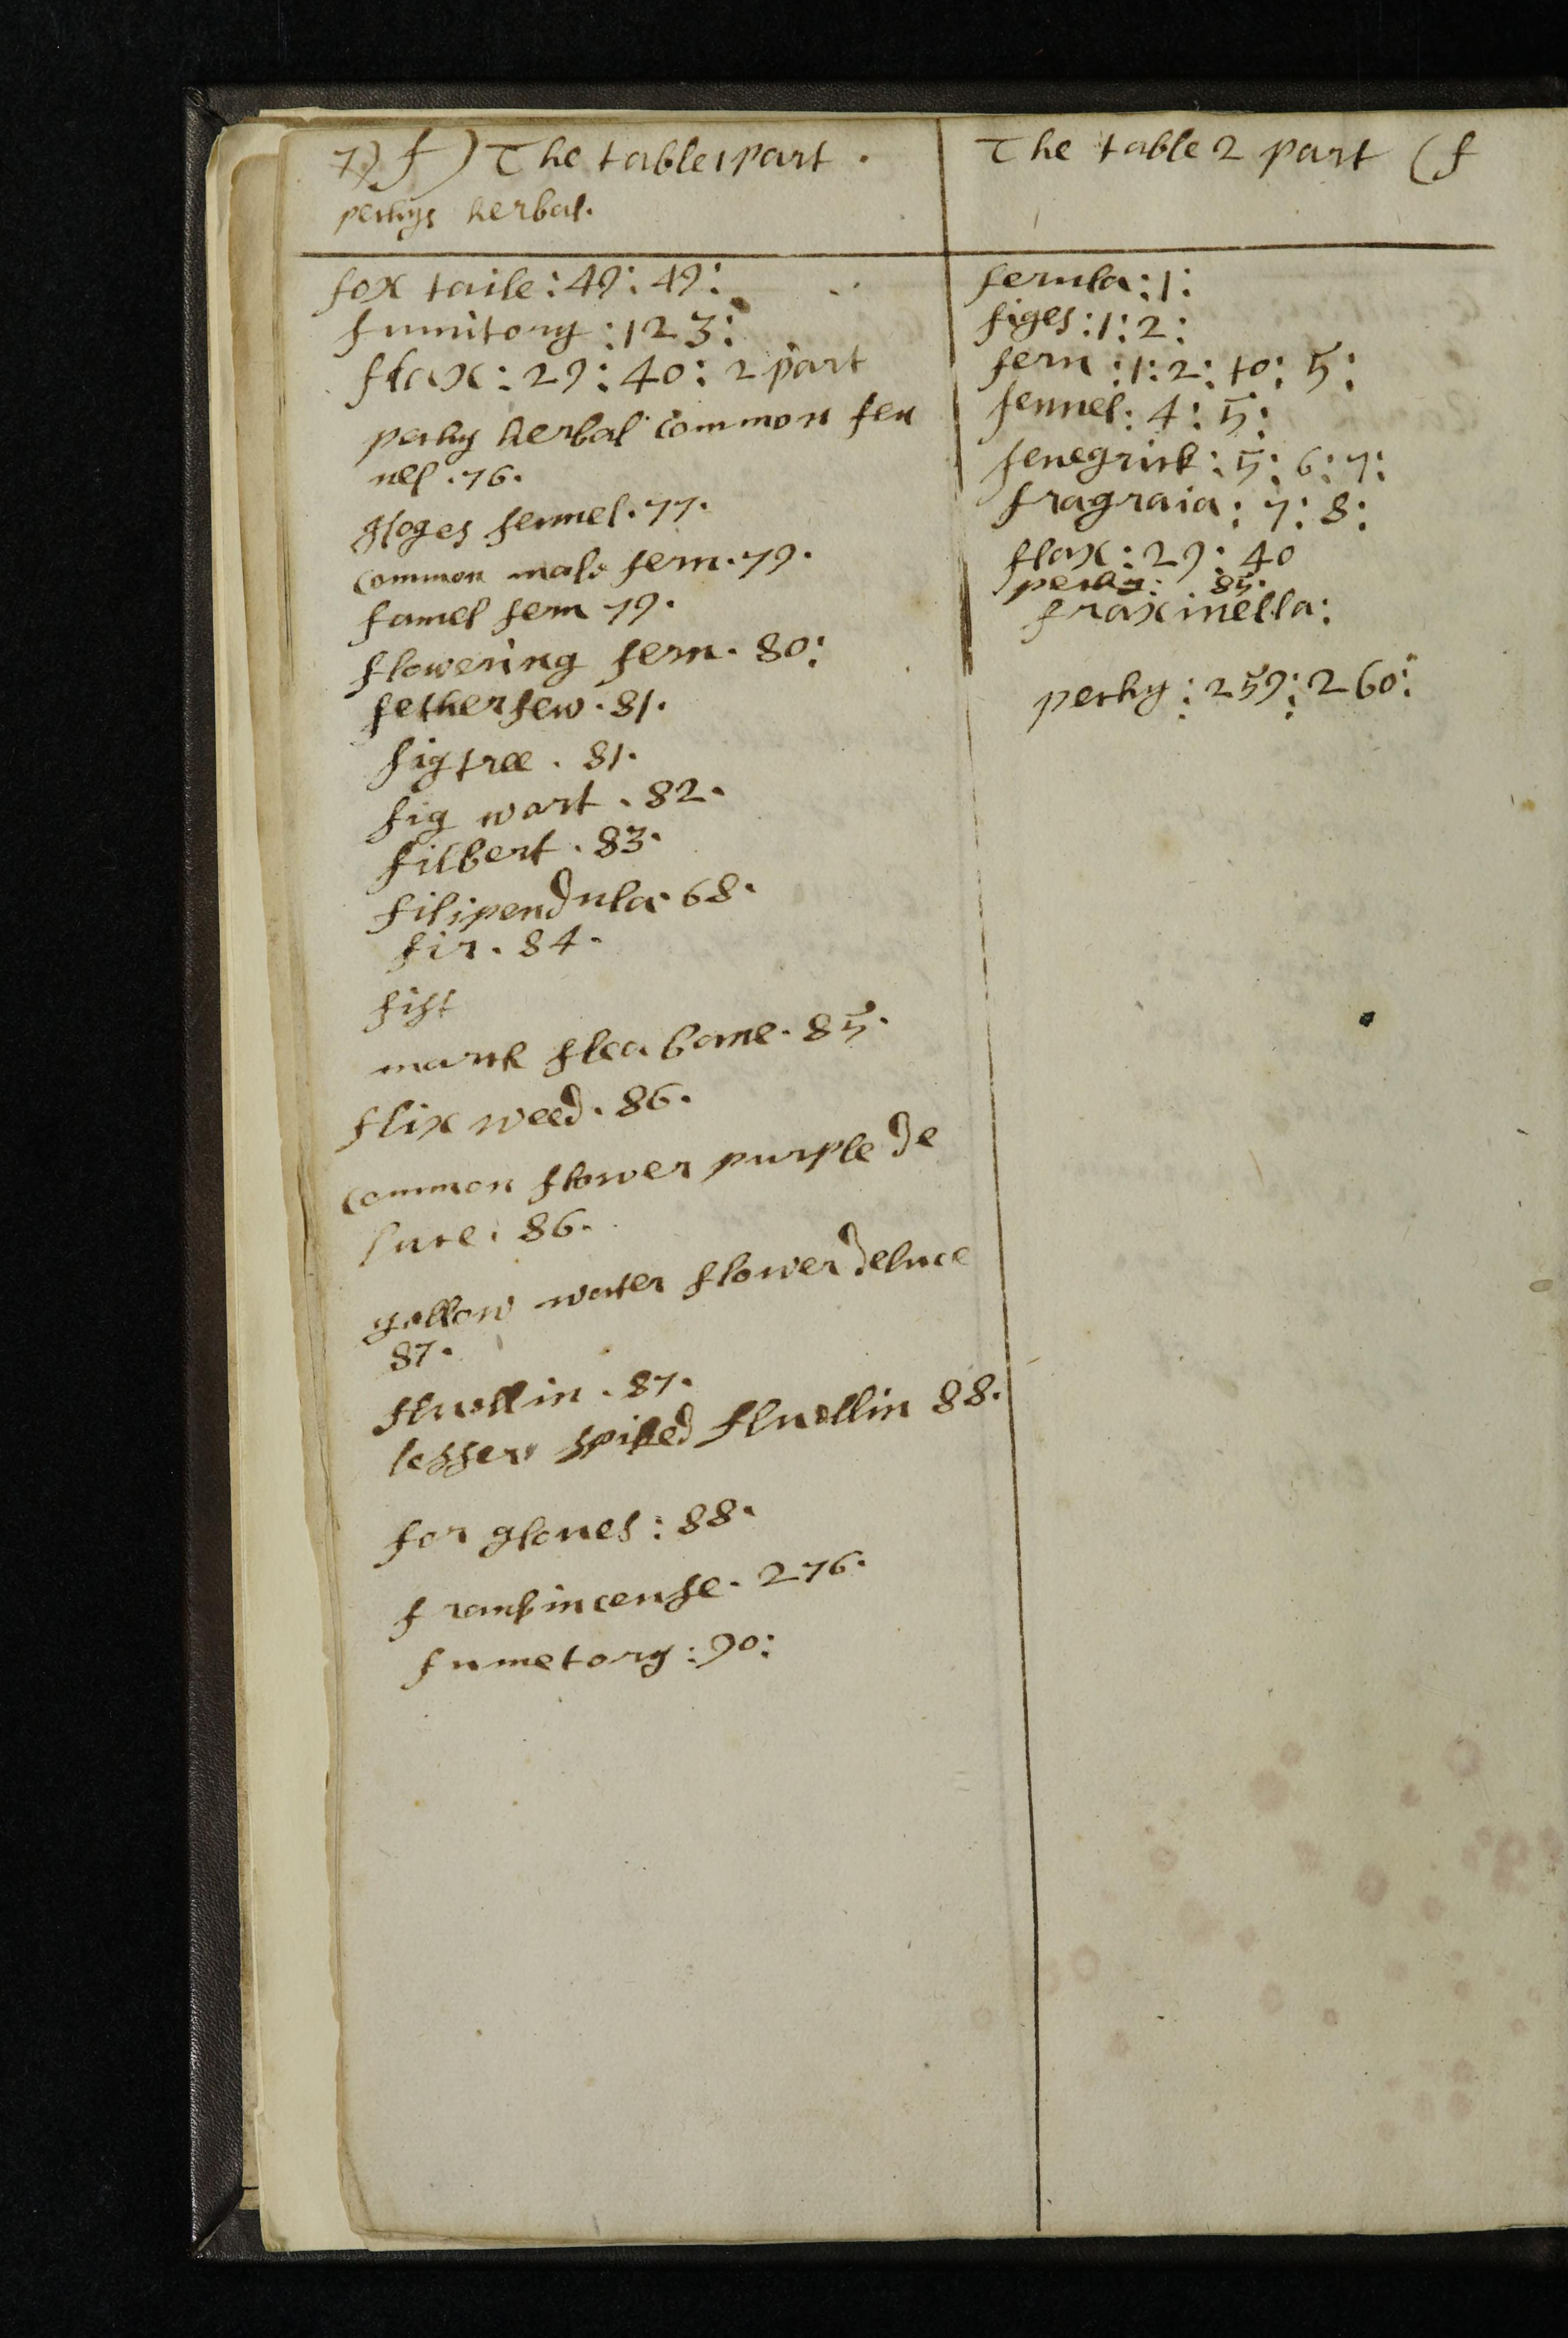 7) f) The table 1 part .
pechys herbal.
fox taile : 49 : 49 :
fumitory : 123 :
flax : 29 : 40 : 2 part
pechy herbal common fen
nel . 76 .
hoges fennel . 77 .
common male fern . 79 .
famel fern 79 .
flowering fern . 80 :
fetherfew . 81 .
fig tree . 81 .
fig wort . 82 .
filbert . 83 .
filipendula . 68 .
fir . 84 .
fist
marsh flea bane . 85 .
flix weed . 86 .
common flower purple de
luce . 86 .
yellow water flower deluce
87 .
fluellin . 87 .
lesser spiked fluellin 88 .
fox gloues : 88 .
frankincense . 276 .
fumetory : 90 :
The table 2 part (f
ferula : 1 :
figes : 1 : 2 :
fern : 1 : 2 : 10 : 5 :
fennel . 4 : 5 :
fenegrick : 5 : 6 : 7 :
fragraia : 7 : 8 :
flax : 29 : 40
pechy : 85 .
fraxinella :
pechy : 259 : 260 :